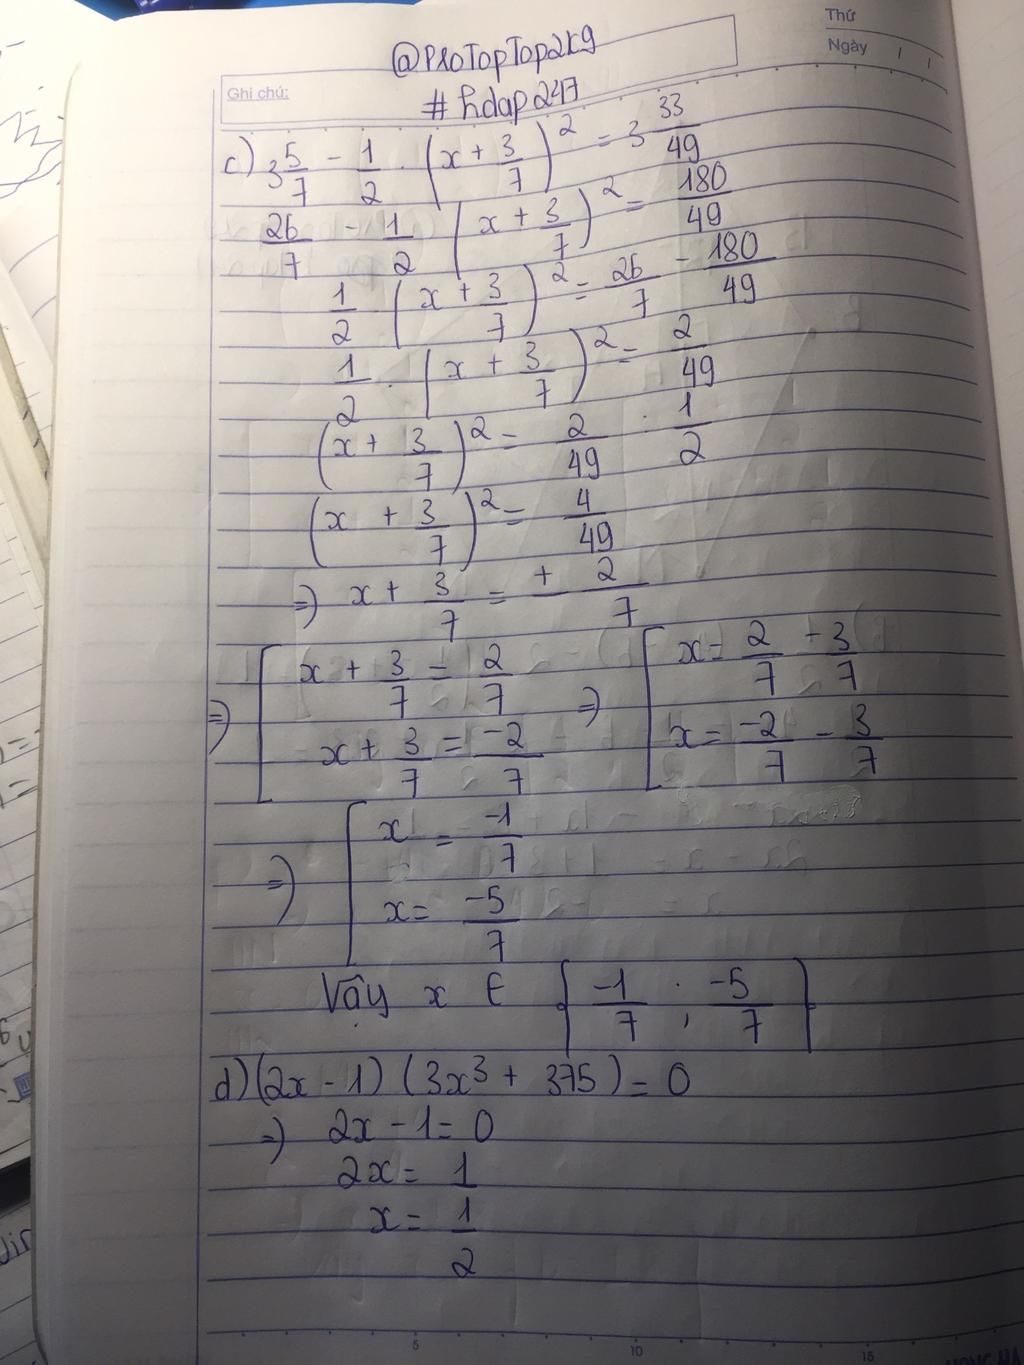 Thứ
Ngày / /
@ProTopTop2k9
Ghi chú:
#hdap247
c) 3 5/7 - 1/2 . (x + 3/7)² = 3 33/49
26/7 - 1/2 (x + 3/7)² = 180/49
1/2 (x + 3/7)² = 26/7 - 180/49
1/2 . (x + 3/7)² = 2/49
(x + 3/7)² = 2/49 : 1/2
(x + 3/7)² = 4/49
=> x + 3/7 = ± 2/7
=> [ x + 3/7 = 2/7 => [ x = 2/7 - 3/7
x + 3/7 = -2/7 x = -2/7 - 3/7
=> [ x = -1/7
x = -5/7
Vậy x ∈ { -1/7 ; -5/7 }
d) (2x - 1) (3x³ + 375) = 0
=> 2x - 1 = 0
2x = 1
x = 1/2
5 10 15